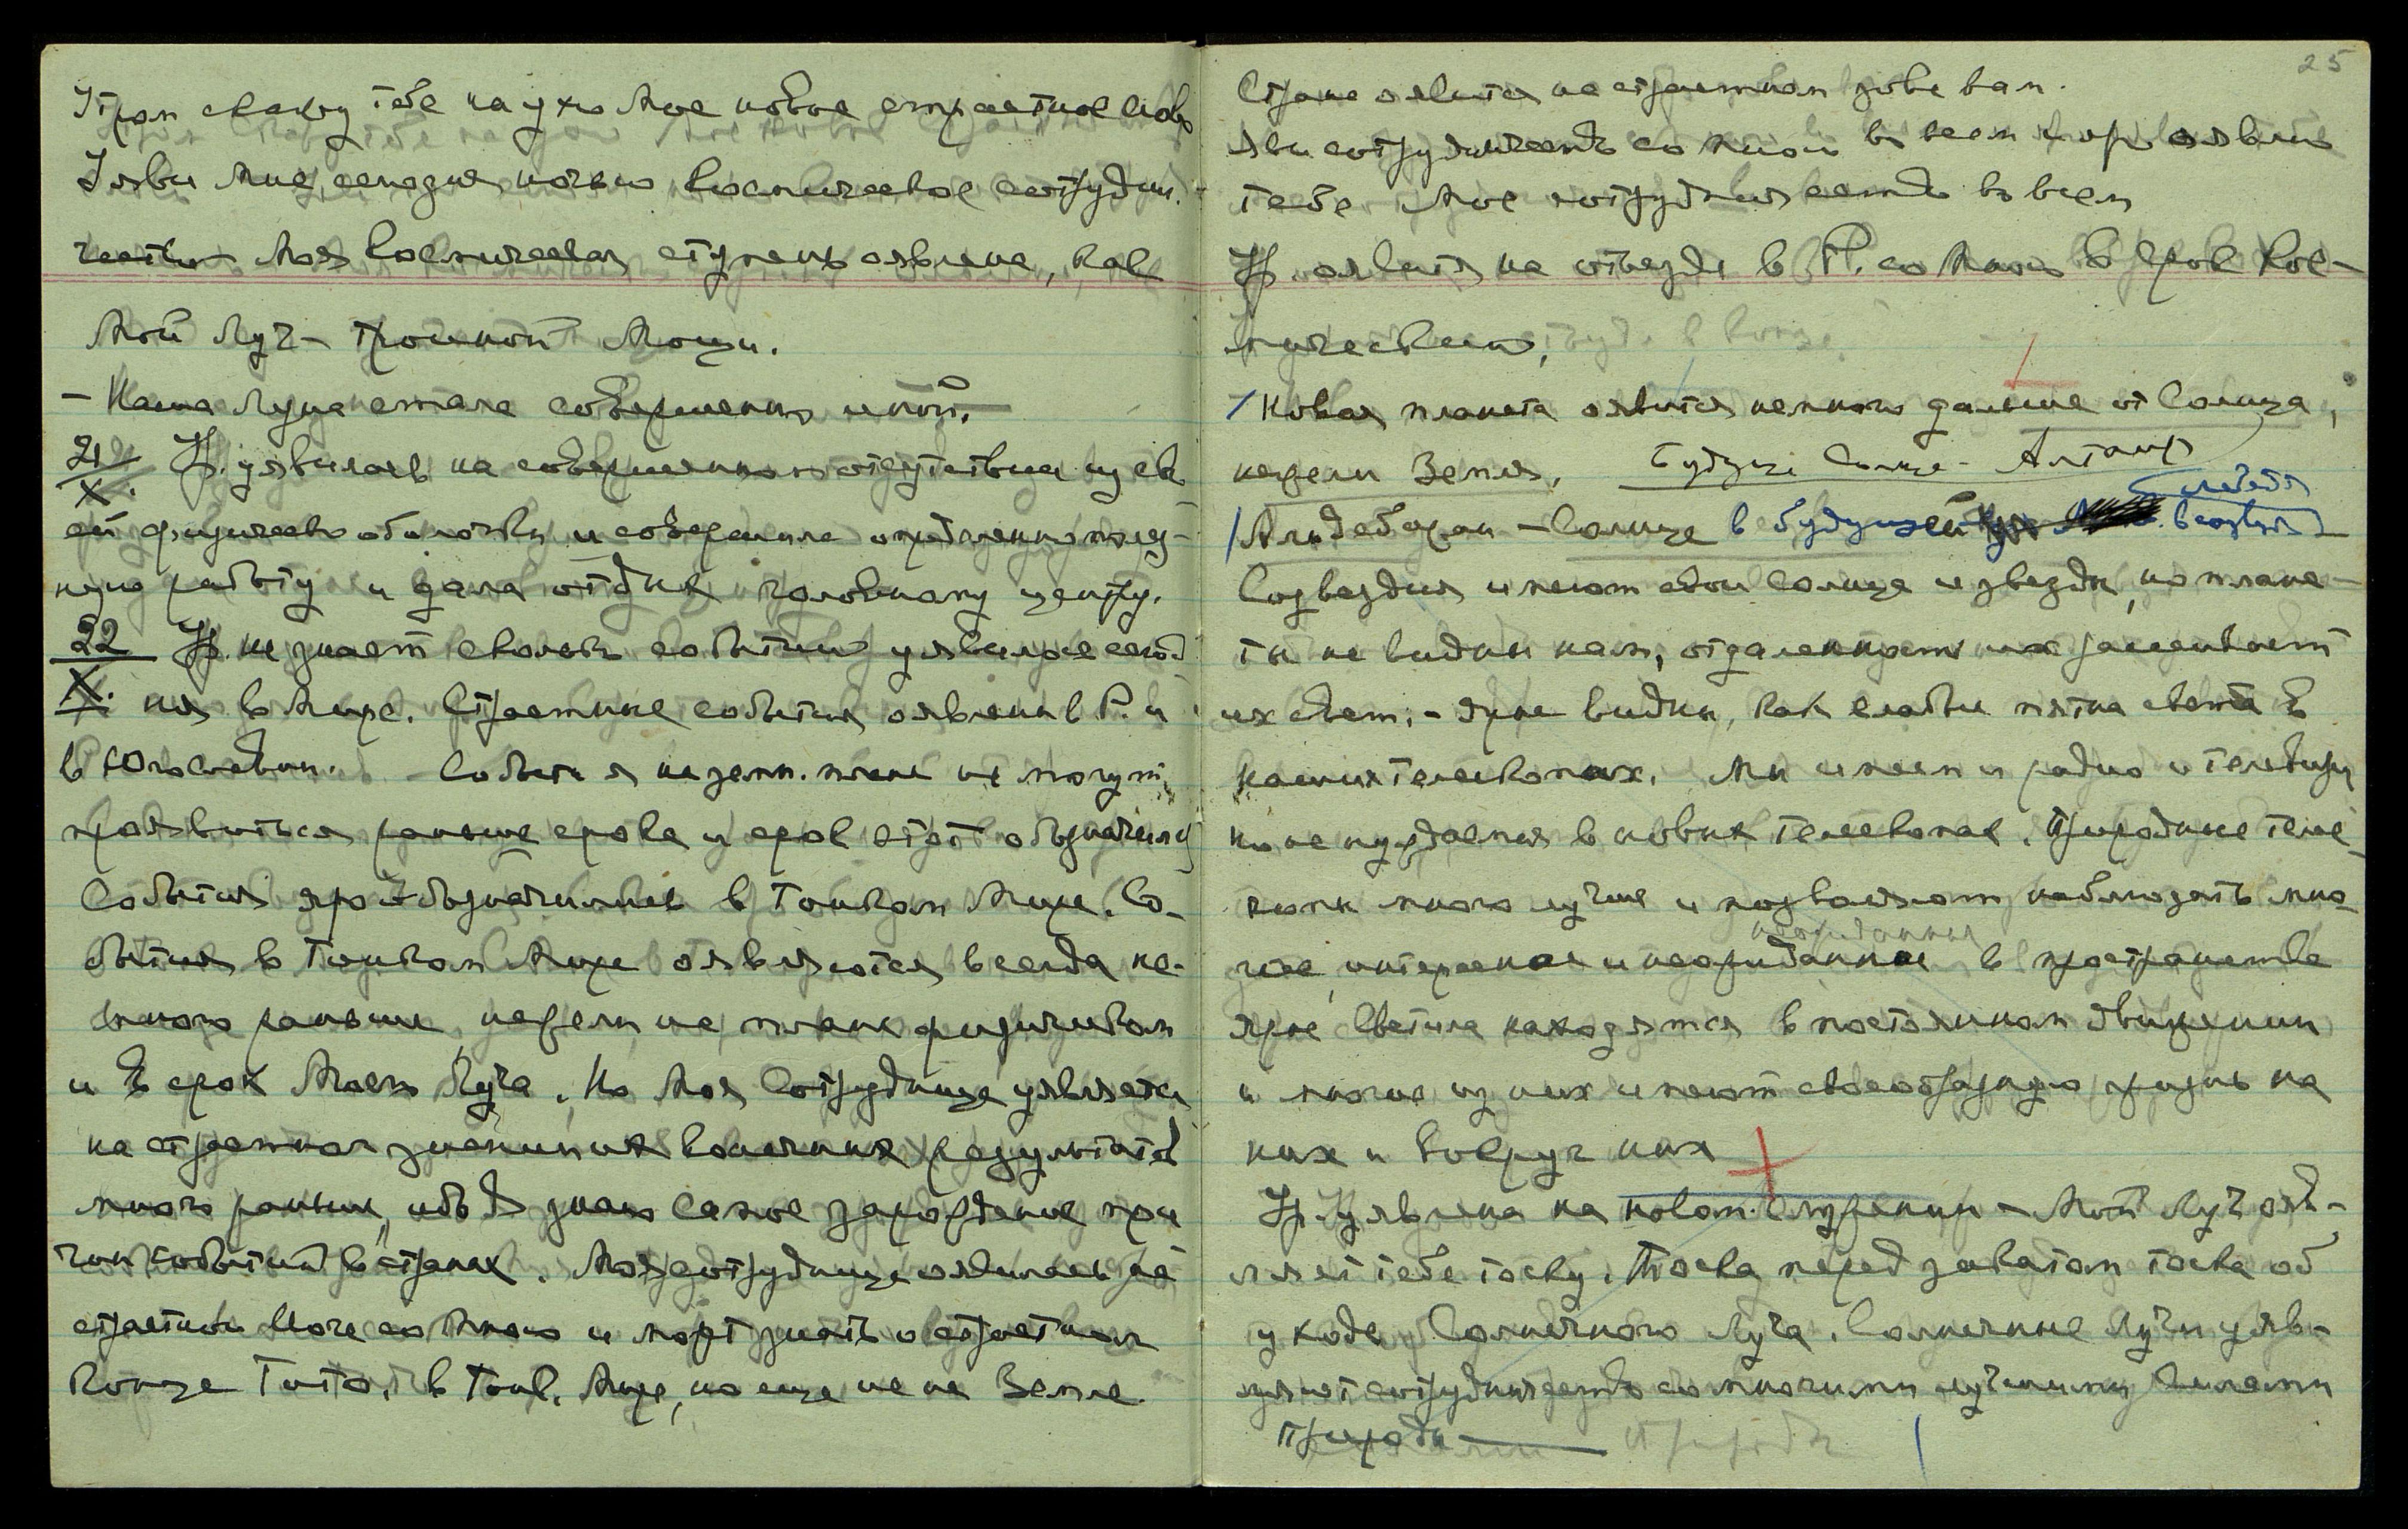 Утром скажу тебе на ухо Мое новое страстное слово
Уяви Мне, сегодня ночью космическое сотрудни-
чество Моя космическая ступень оявлена, как
Мой Луч – тройной Мощи.
– Наша Луна стала совершенно иной.
21/X. Ур. уявилась на совершенном отсутствии из св
ей физическ. оболочки и совершила определенную
работу и дала отдых головному центру.
22/X. Ур. не знает сколько событий уявилось сегод
ня в Мире. Страстные события оявлены в Р. и
в Югославии. События на земн. плане не могут
проявиться раньше срока и срок этот обозначился
События яро обозначились в Тонком Мире. Со-
бытия в Тонком Мире оявляются всегда не-
много раньше, нежели на плане физическом
и в срок Моего Луча. Но Моя Сотрудница уявляется
на страстном знании их конечных результатов
много раньше, ибо Я знаю самое зарождение при
чин событий в странах. Моя сотрудница оявилась на
страстной со Мною и может знать о страстном
конце Тито, в Тонк. Мире, но еще не на Земле.
25
Стране оявится на страстном зове вам.
Яви сотрудничество со Мною во всем и Ур. оявлю
тебе Мое сотрудничество во всем
Ур. оявится на отъезде в Р. со Мною в срок кос-
мический,
Новая планета оявится немного дальше от Солнца,
нежели Земля. Будущее Солнце – Алтаир
Альдебаран – Солнце в будущей созвездия Лебедя
Созвездия имеют свои Солнца и звезды, но плане-
ты не видны нам, отдаленность их заслоняет
их свет, – ярые видны, как слабые пятна света в
наших телескопах. Мы имеем и радио и телевизи
но не нуждаемся в новых телескопах. Природные теле-
скопы много лучше и позволяют наблюдать мно
гое, интересное и неожиданное в пространстве
неожиданная
Ярые Светила находятся в постоянном движении
и многие из них имеют своеобразную жизнь на
них и вокруг них
Ур. уявлена на новом служении – Мой Луч ояв-
ляет тебе тоску. Тоска перед закатом тоска об
уходе Солнечного Луча. Солнечные Лучи уяв-
ляют сотрудничество со многими лучшими силами
Природы
Природы